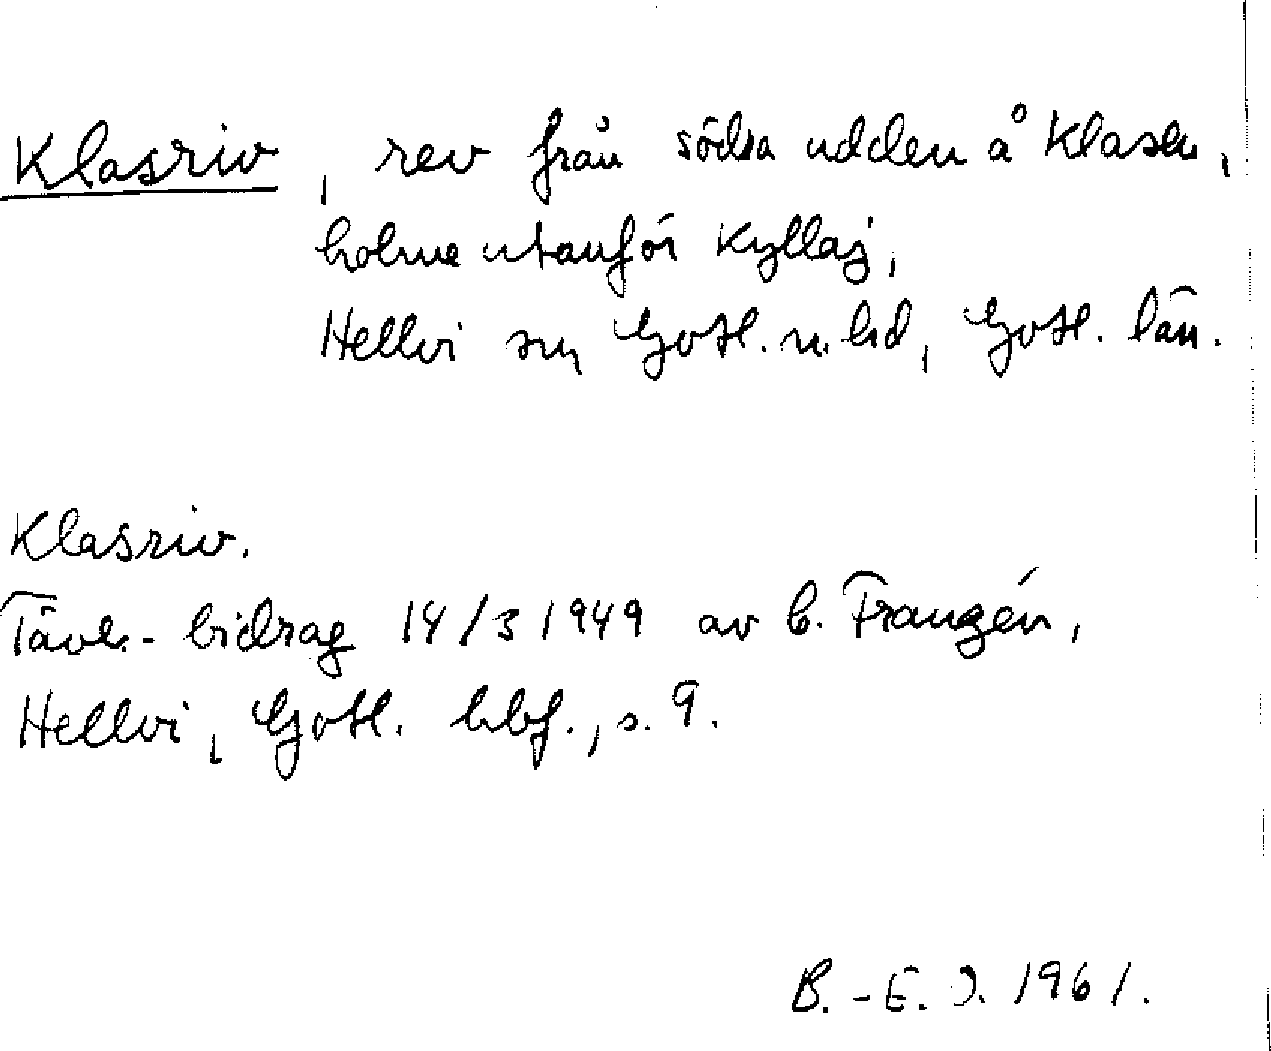 Klasriv, rev från södra udden å Klasen,
holme utanför Kyllaj,
Hellvi sn, Gotl. n. hd, Gotl. län.
Klasriv.
Tävl.-bidrag 14/3 1949 av b. Franzén,
Hellvi, Gotl. hbf., s. 9.
B.-E. O. 1961.